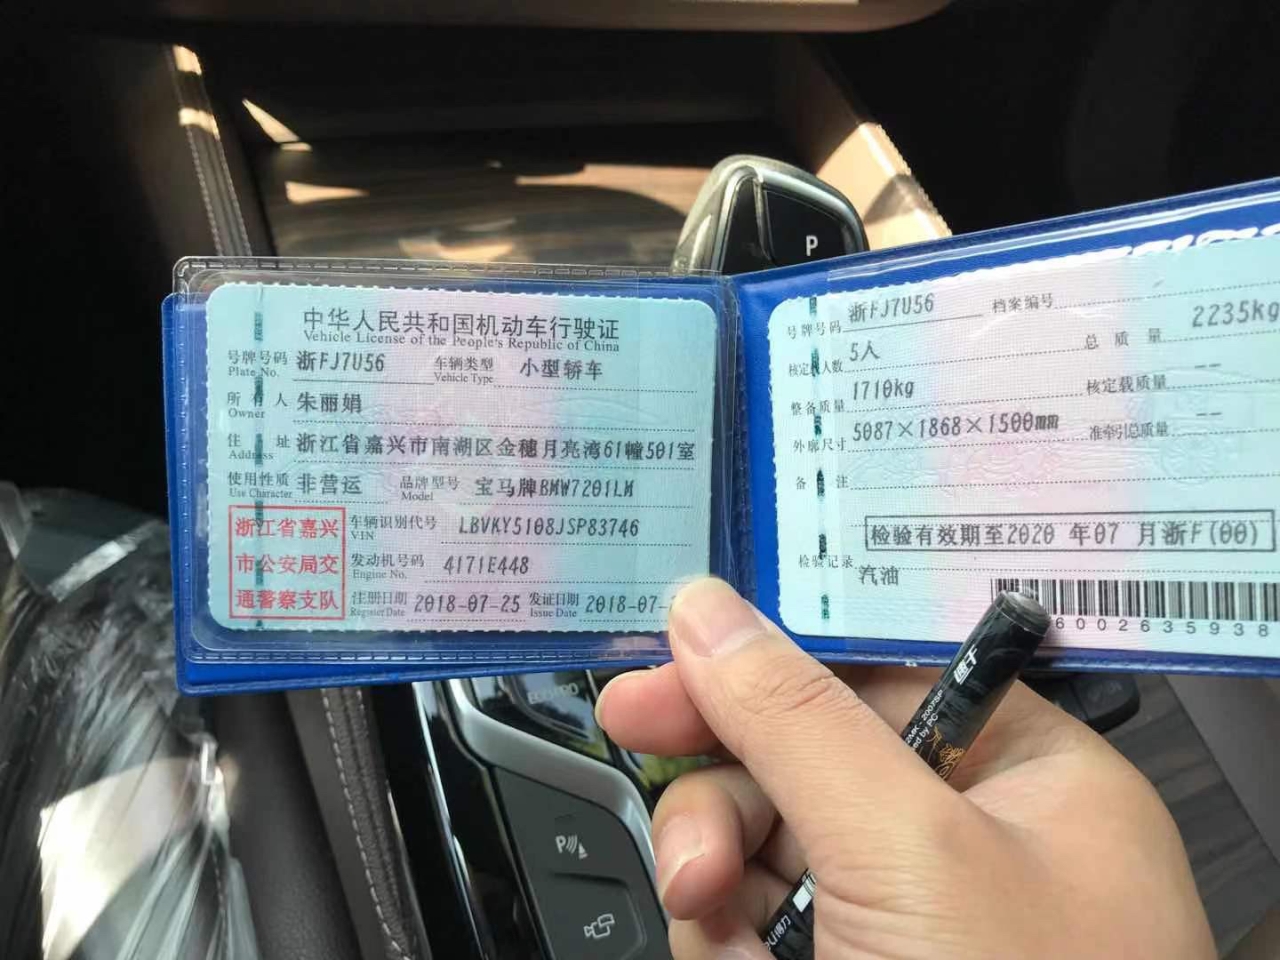 中华人民共和国机动车行驶证
Vehicle License of the People's Republic of China
号牌号码 浙FJ7U56 车辆类型 小型轿车
Plate No. Vehicle Type
所有人 朱丽娟
Owner
住址 浙江省嘉兴市南湖区金穗月亮湾61幢501室
Address
使用性质 非营运 品牌型号 宝马牌BMW7201LM
Use Character Model
浙江省嘉兴
市公安局交
通警察支队
车辆识别代号 LBVKY5108JSP83746
VIN
发动机号码 4171E448
Engine No.
注册日期 2018-07-25 发证日期 2018-07-
Register Date Issue Date
号牌号码 浙FJ7U56 档案编号
核定人数 5人 总质量 2235kg
整备质量 1710kg 核定载质量 --
外廓尺寸 5087×1868×1500mm 准牵引总质量 --
备注
检验有效期至2020 年07 月浙F(00)
检验记录
汽油
6002635938
P
速干
得力
P